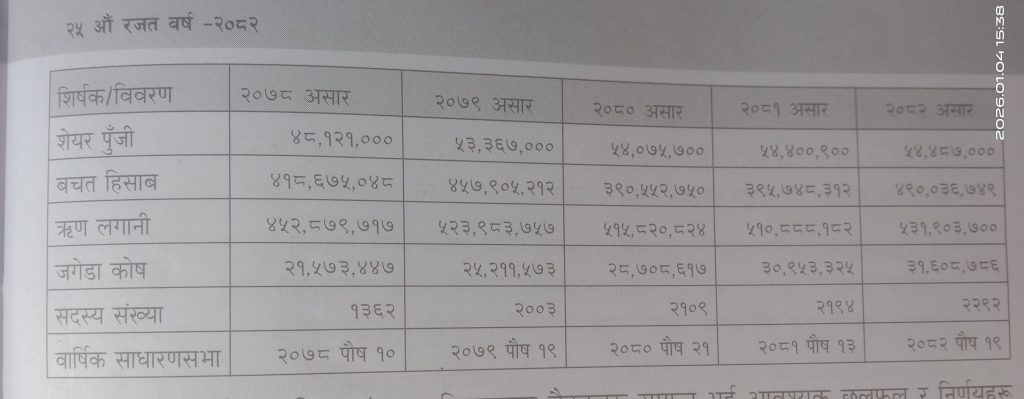 २५ औ रजत वर्ष -२०८२
2026.01.04 15:38
शिर्षक/विवरण २०७८ असार २०७९ असार २०८० असार २०८१ असार २०८२ असार
शेयर पुँजी ४८,१२१,००० ५३,३६७,००० ५४,०७५,७०० ५४,४००,९०० ५४,४८७,०००
बचत हिसाब ४१८,६७५,०४८ ४५७,९०५,२१२ ३९०,५५२,७५० ३९५,७४८,३१२ ४९०,०३६,७४९
ऋण लगानी ४५२,८७९,७१७ ५२३,९८३,७५७ ५१५,८२०,८२४ ५१०,८८८,१८२ ५३१,९०३,७००
जगेडा कोष २१,५७३,४४७ २५,२११,५७३ २८,७०८,६१७ ३०,९५३,३२५ ३१,६०८,७८६
सदस्य संख्या १३६२ २००३ २१०९ २१९४ २२९२
वार्षिक साधारणसभा २०७८ पौष १० २०७९ पौष १९ २०८० पौष २१ २०८१ पौष १३ २०८२ पौष १९
छलफल र निर्णयहरू